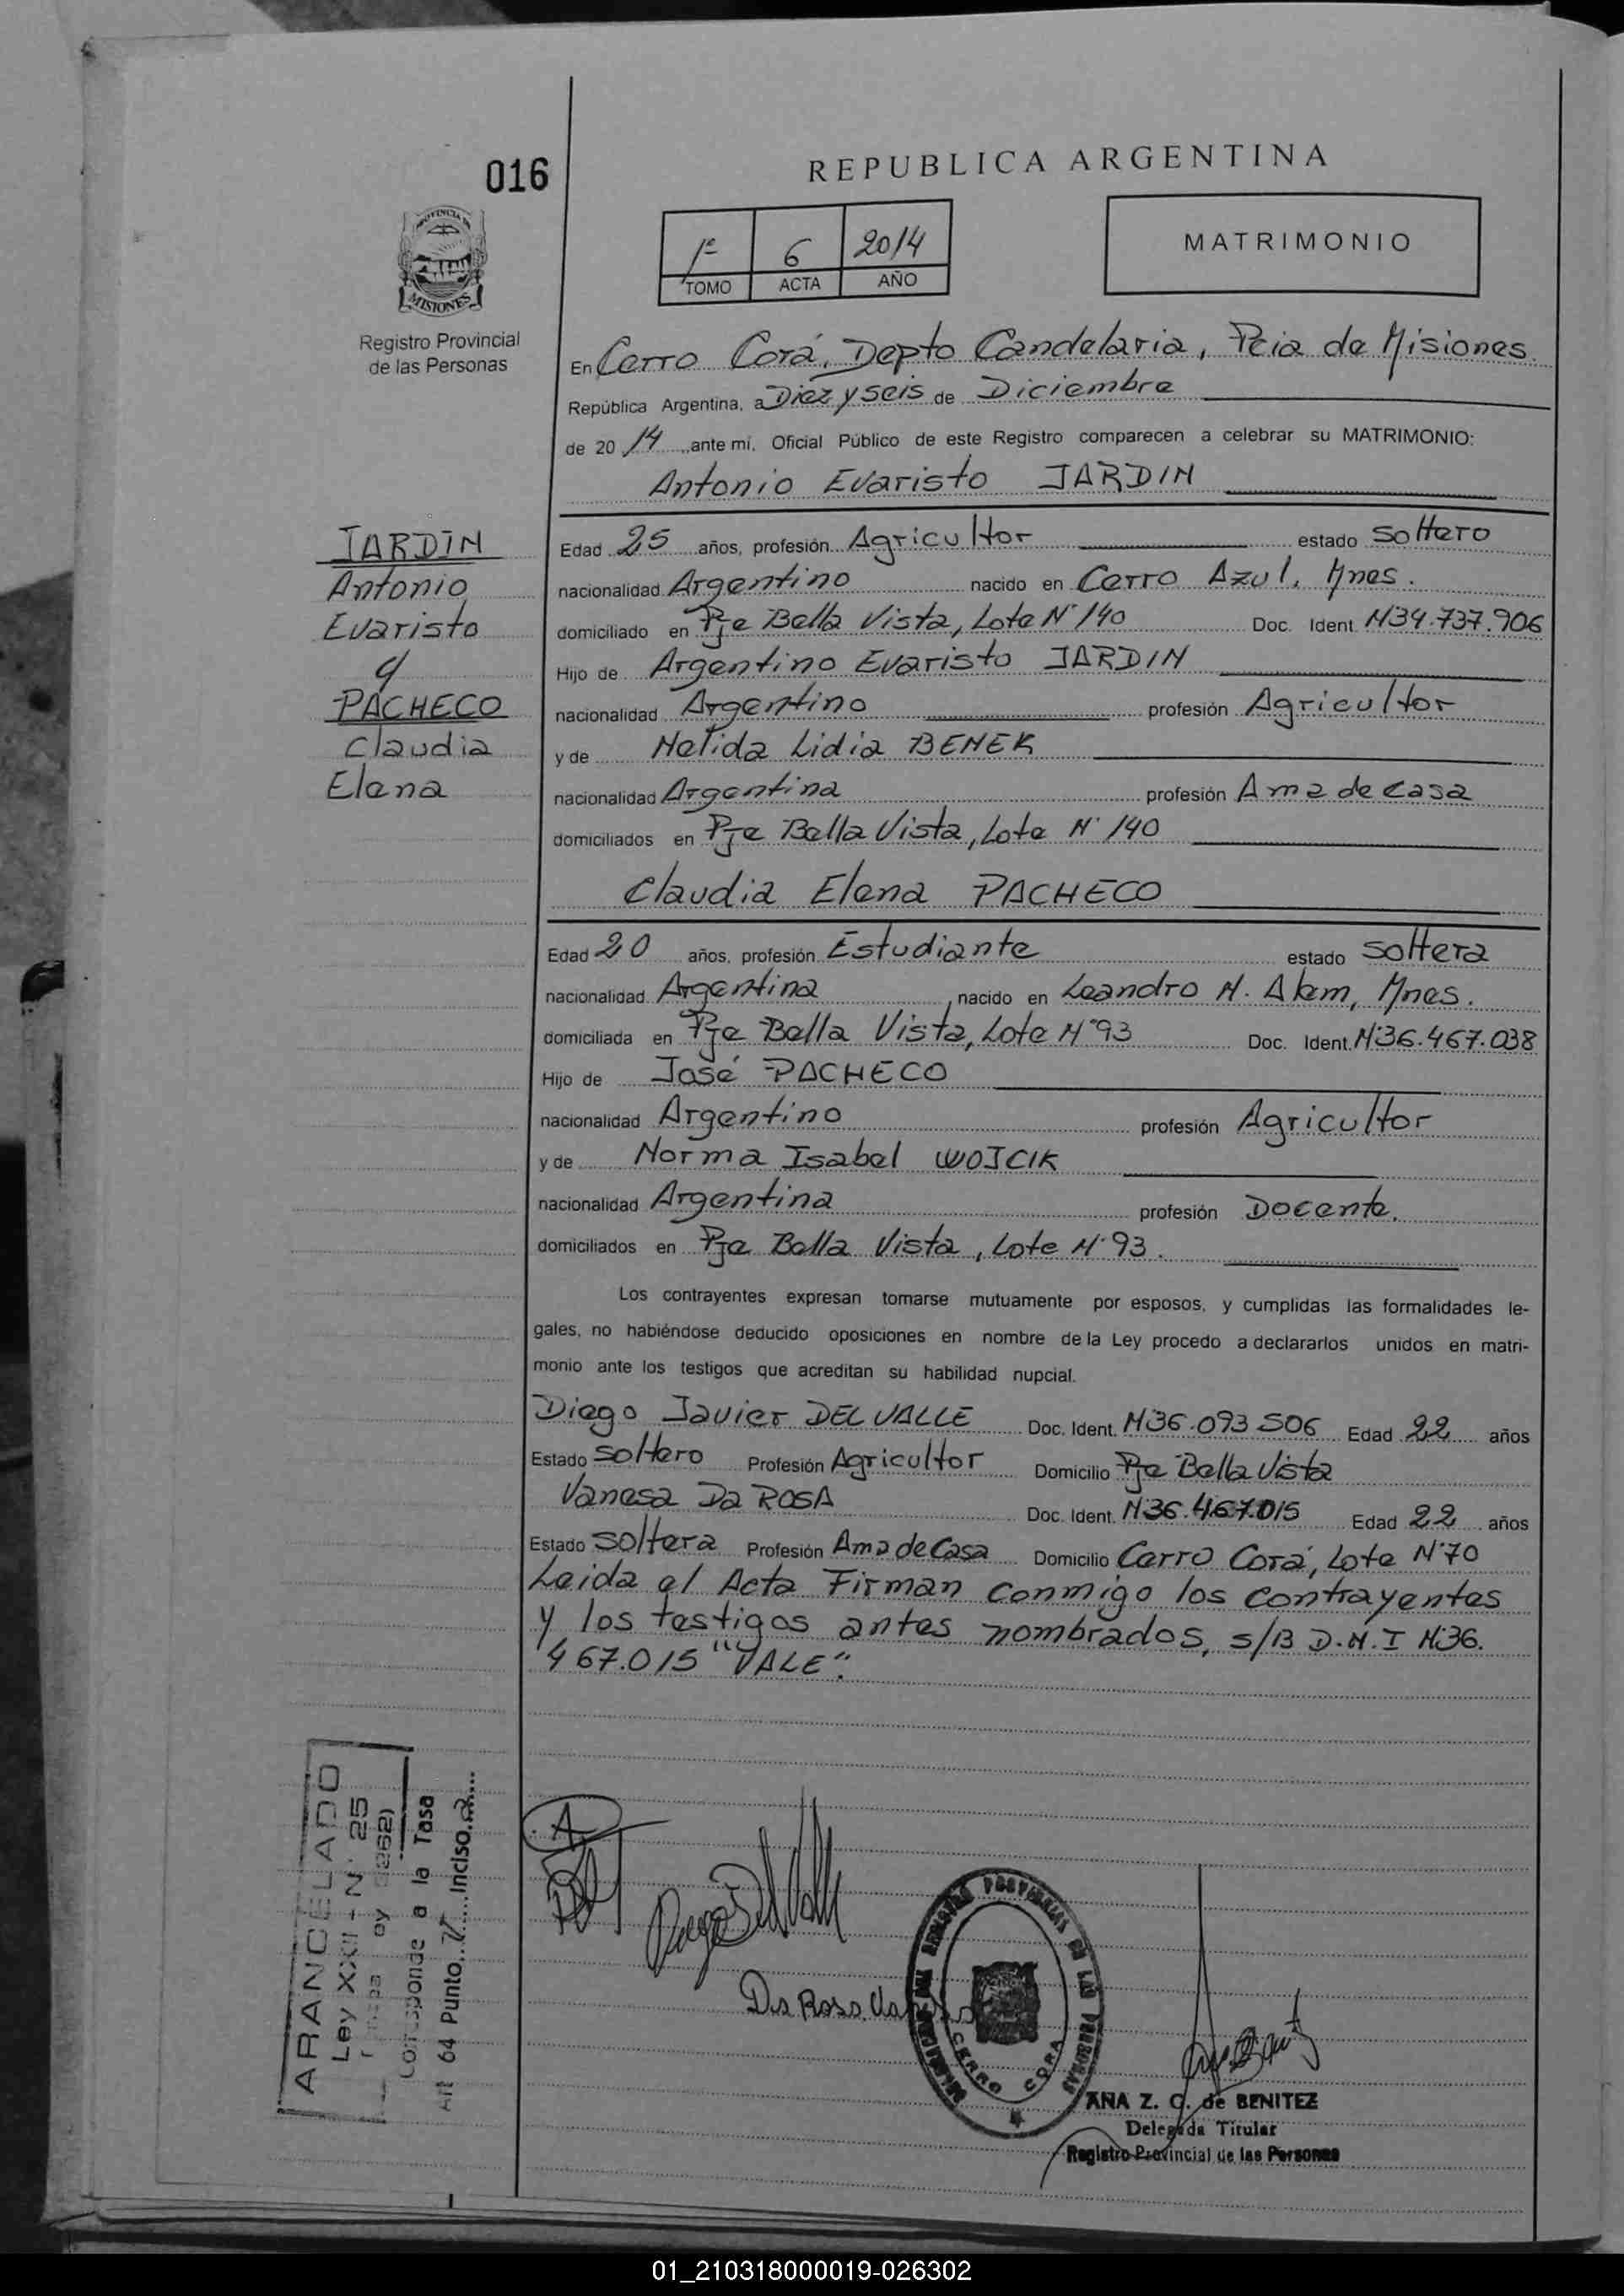 016
REPUBLICA ARGENTINA
PROVINCIA DE
MISIONES
1º 6 2014
TOMO ACTA AÑO
MATRIMONIO
Registro Provincial
de las Personas
En Cerro Corá, Depto Candelaria, Pcia de Misiones
República Argentina, a Diez y seis de Diciembre
de 20 14 ,ante mí, Oficial Público de este Registro comparecen a celebrar su MATRIMONIO:
Antonio Evaristo JARDIN
JARDIN
Antonio
Evaristo
y
PACHECO
Claudia
Elena
Edad 25 años, profesión Agricultor estado soltero
nacionalidad Argentino nacido en Cerro Azul, Mnes.
domiciliado en Pje Bella Vista, Lote Nº 140 Doc. Ident. Nº34.737.906
Hijo de Argentino Evaristo JARDIN
nacionalidad Argentino profesión Agricultor
y de Nelida Lidia BENEK
nacionalidad Argentina profesión Ama de casa
domiciliados en Pje Bella Vista, Lote Nº 140
Claudia Elena PACHECO
Edad 20 años, profesión Estudiante estado soltera
nacionalidad Argentina nacido en Leandro N. Alem, Mnes.
domiciliada en Pje Bella Vista, Lote Nº 93 Doc. Ident. Nº36.467.038
Hijo de José PACHECO
nacionalidad Argentino profesión Agricultor
y de Norma Isabel WOJCIK
nacionalidad Argentina profesión Docente.
domiciliados en Pje Bella Vista, Lote Nº 93.
Los contrayentes expresan tomarse mutuamente por esposos, y cumplidas las formalidades le-
gales, no habiéndose deducido oposiciones en nombre de la Ley procedo a declararlos unidos en matri-
monio ante los testigos que acreditan su habilidad nupcial.
Diego Javier DEL VALLE Doc. Ident. Nº36.093.506 Edad 22 años
Estado soltero Profesión Agricultor Domicilio Pje Bella Vista
Vanesa Da ROSA Doc. Ident. Nº36.467.015 Edad 22 años
Estado soltera Profesión Ama de Casa Domicilio Cerro Corá, Lote Nº70
Leida el Acta Firman conmigo los contrayentes
y los testigos antes nombrados, s/B D.N.I Nº36.
467.015 "VALE".
ARANCELADO
Ley XXII - Nº 25
Corresponde a la Tasa
Art 64 Punto Inciso a
A
Diego Del Valle
Da Rosa Va
REGISTRO PROVINCIAL DE LAS PERSONAS
CERRO CORA
ANA Z. C. de BENITEZ
Delegada Titular
Registro Provincial de las Personas
01_210318000019-026302